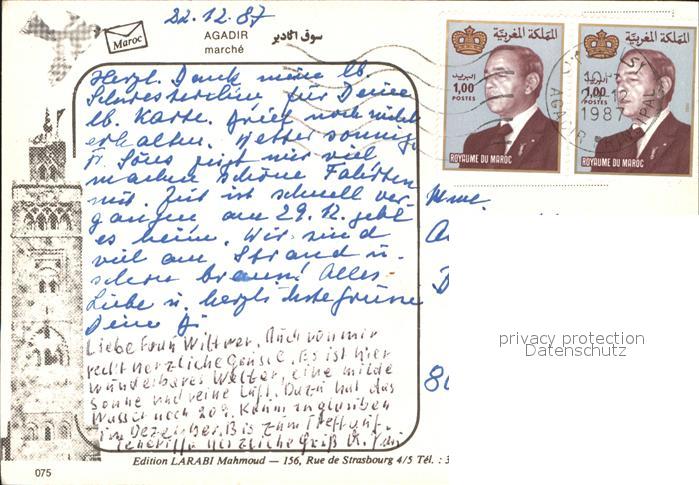 22.12.87
Maroc
AGADIR
marché
سوق اگادير
Herzl. Dank meine lb.
Schwesterlein für Deine
lb. Karte. Brief noch nicht
erhalten. Wetter sonnig
zeigt mir viel
machen schöne Fahrten
mit. Zeit ist schnell ver-
gangen am 29.12. geht
es heim. Wir sind
viel am Strand u.
schon braun! Alles
Liebe u. herzlichste Grüße
Deine
Liebe Frau Wittwer. Auch von mir
recht herzliche Grüsse. Es ist hier
wunderbares Wetter, eine milde
Sonne und reine Luft. Dazu hat das
Wasser noch 20g. Kaum zu glauben
im Dezember. Bis zum Treff auf
Teneriffa herzliche Grüß
المملكة المغربية
البريد
1,00
POSTES
ROYAUME DU MAROC
المملكة المغربية
1,00
POSTES
ROYAUME DU MAROC
AGADIR PRINCIPAL
1987
Mme.
privacy protection
Datenschutz
Edition LARABI Mahmoud — 156, Rue de Strasbourg 4/5 Tél. : 3
075